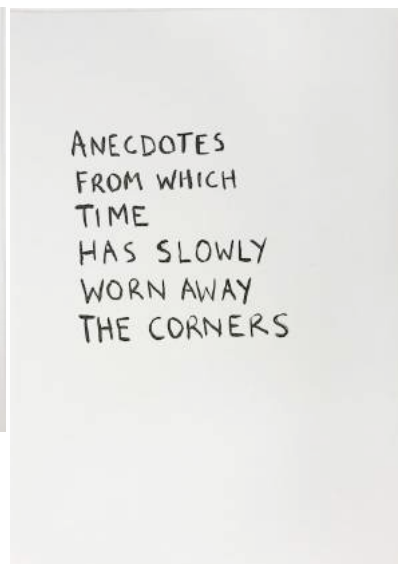 ANECDOTES
FROM WHICH
TIME
HAS SLOWLY
WORN AWAY
THE CORNERS